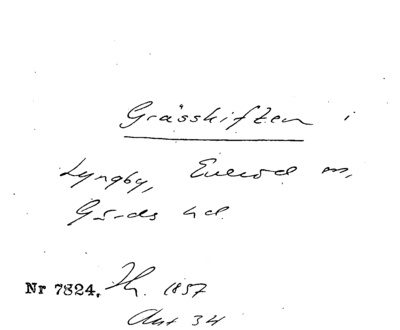 Grässkiften i
Lyngby, Everöd m,
Gärds hd
Nr 7824. 1857
Akt 34